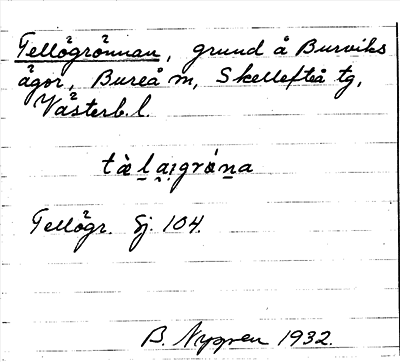 Tellögrönnan, grund å Burviks
ägor, Bureå sn, Skellefteå tg,
Västerb. l.
Tellögr. Sj. 104.
B. Nygren 1932.